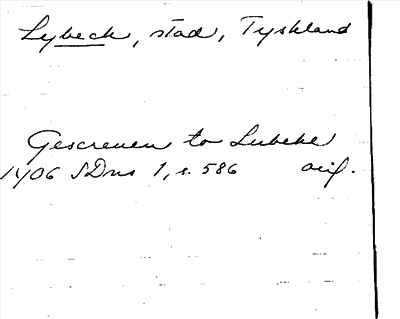 Lybeck, stad, Tyskland
Gescreuen to Lubeke
1406 SDns 1, s. 586 orig.